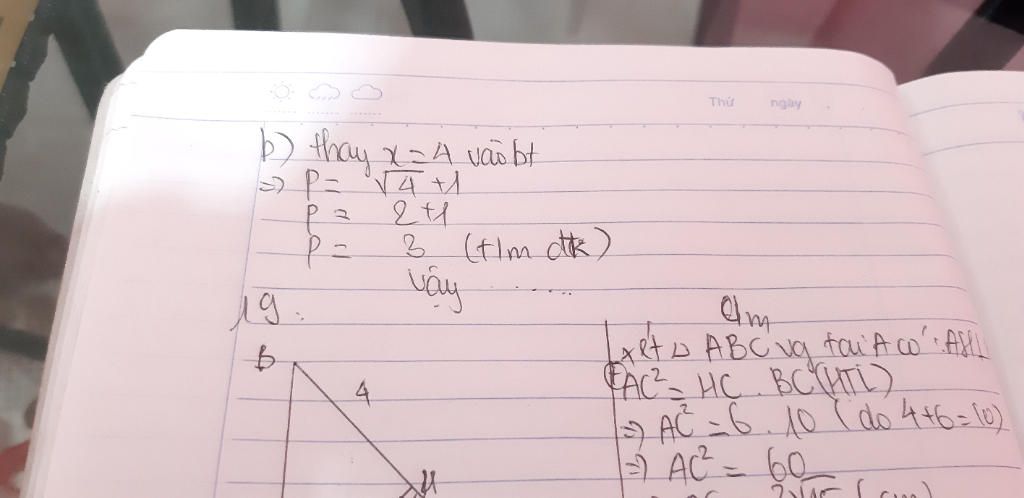 Thứ ngày
b) thay x = 4 vào bt
=> P = √4 + 1
P = 2 + 1
P = 3 (t/m đk)
vậy ......
19.
B
4
H
xét △ ABC vg tại A có: AH⊥
AC² = HC . BC (HTL)
=> AC² = 6 . 10 (do 4+6=10)
=> AC² = 60